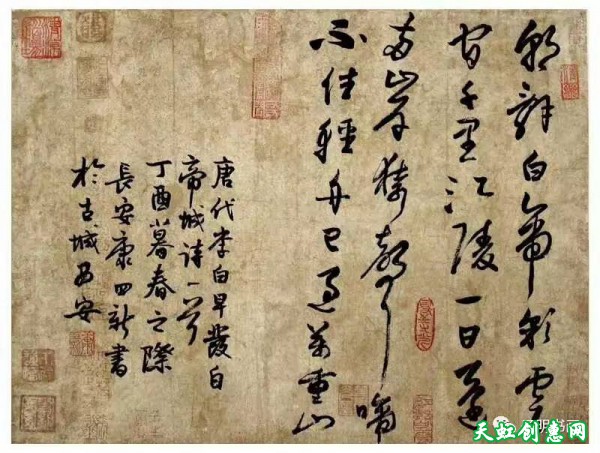 朝辭白帝彩雲
间千里江陵一日還
两岸猿聲啼
不住輕舟已過萬重山
唐代李白早發白
帝城诗一首
丁酉暮春之際
長安康四新書
於古城西安
天虹创惠网